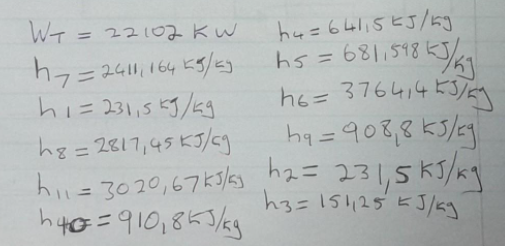 WT = 22102 KW
h7 = 2411,164 KJ/kg
h1 = 231,5 KJ/kg
h8 = 2817,45 KJ/kg
h11 = 3020,67 KJ/kg
h10 = 910,8 KJ/kg
h4 = 641,5 KJ/kg
h5 = 681,598 KJ/kg
h6 = 3764,4 KJ/kg
h9 = 908,8 KJ/kg
h2 = 231,5 KJ/kg
h3 = 151,25 KJ/kg